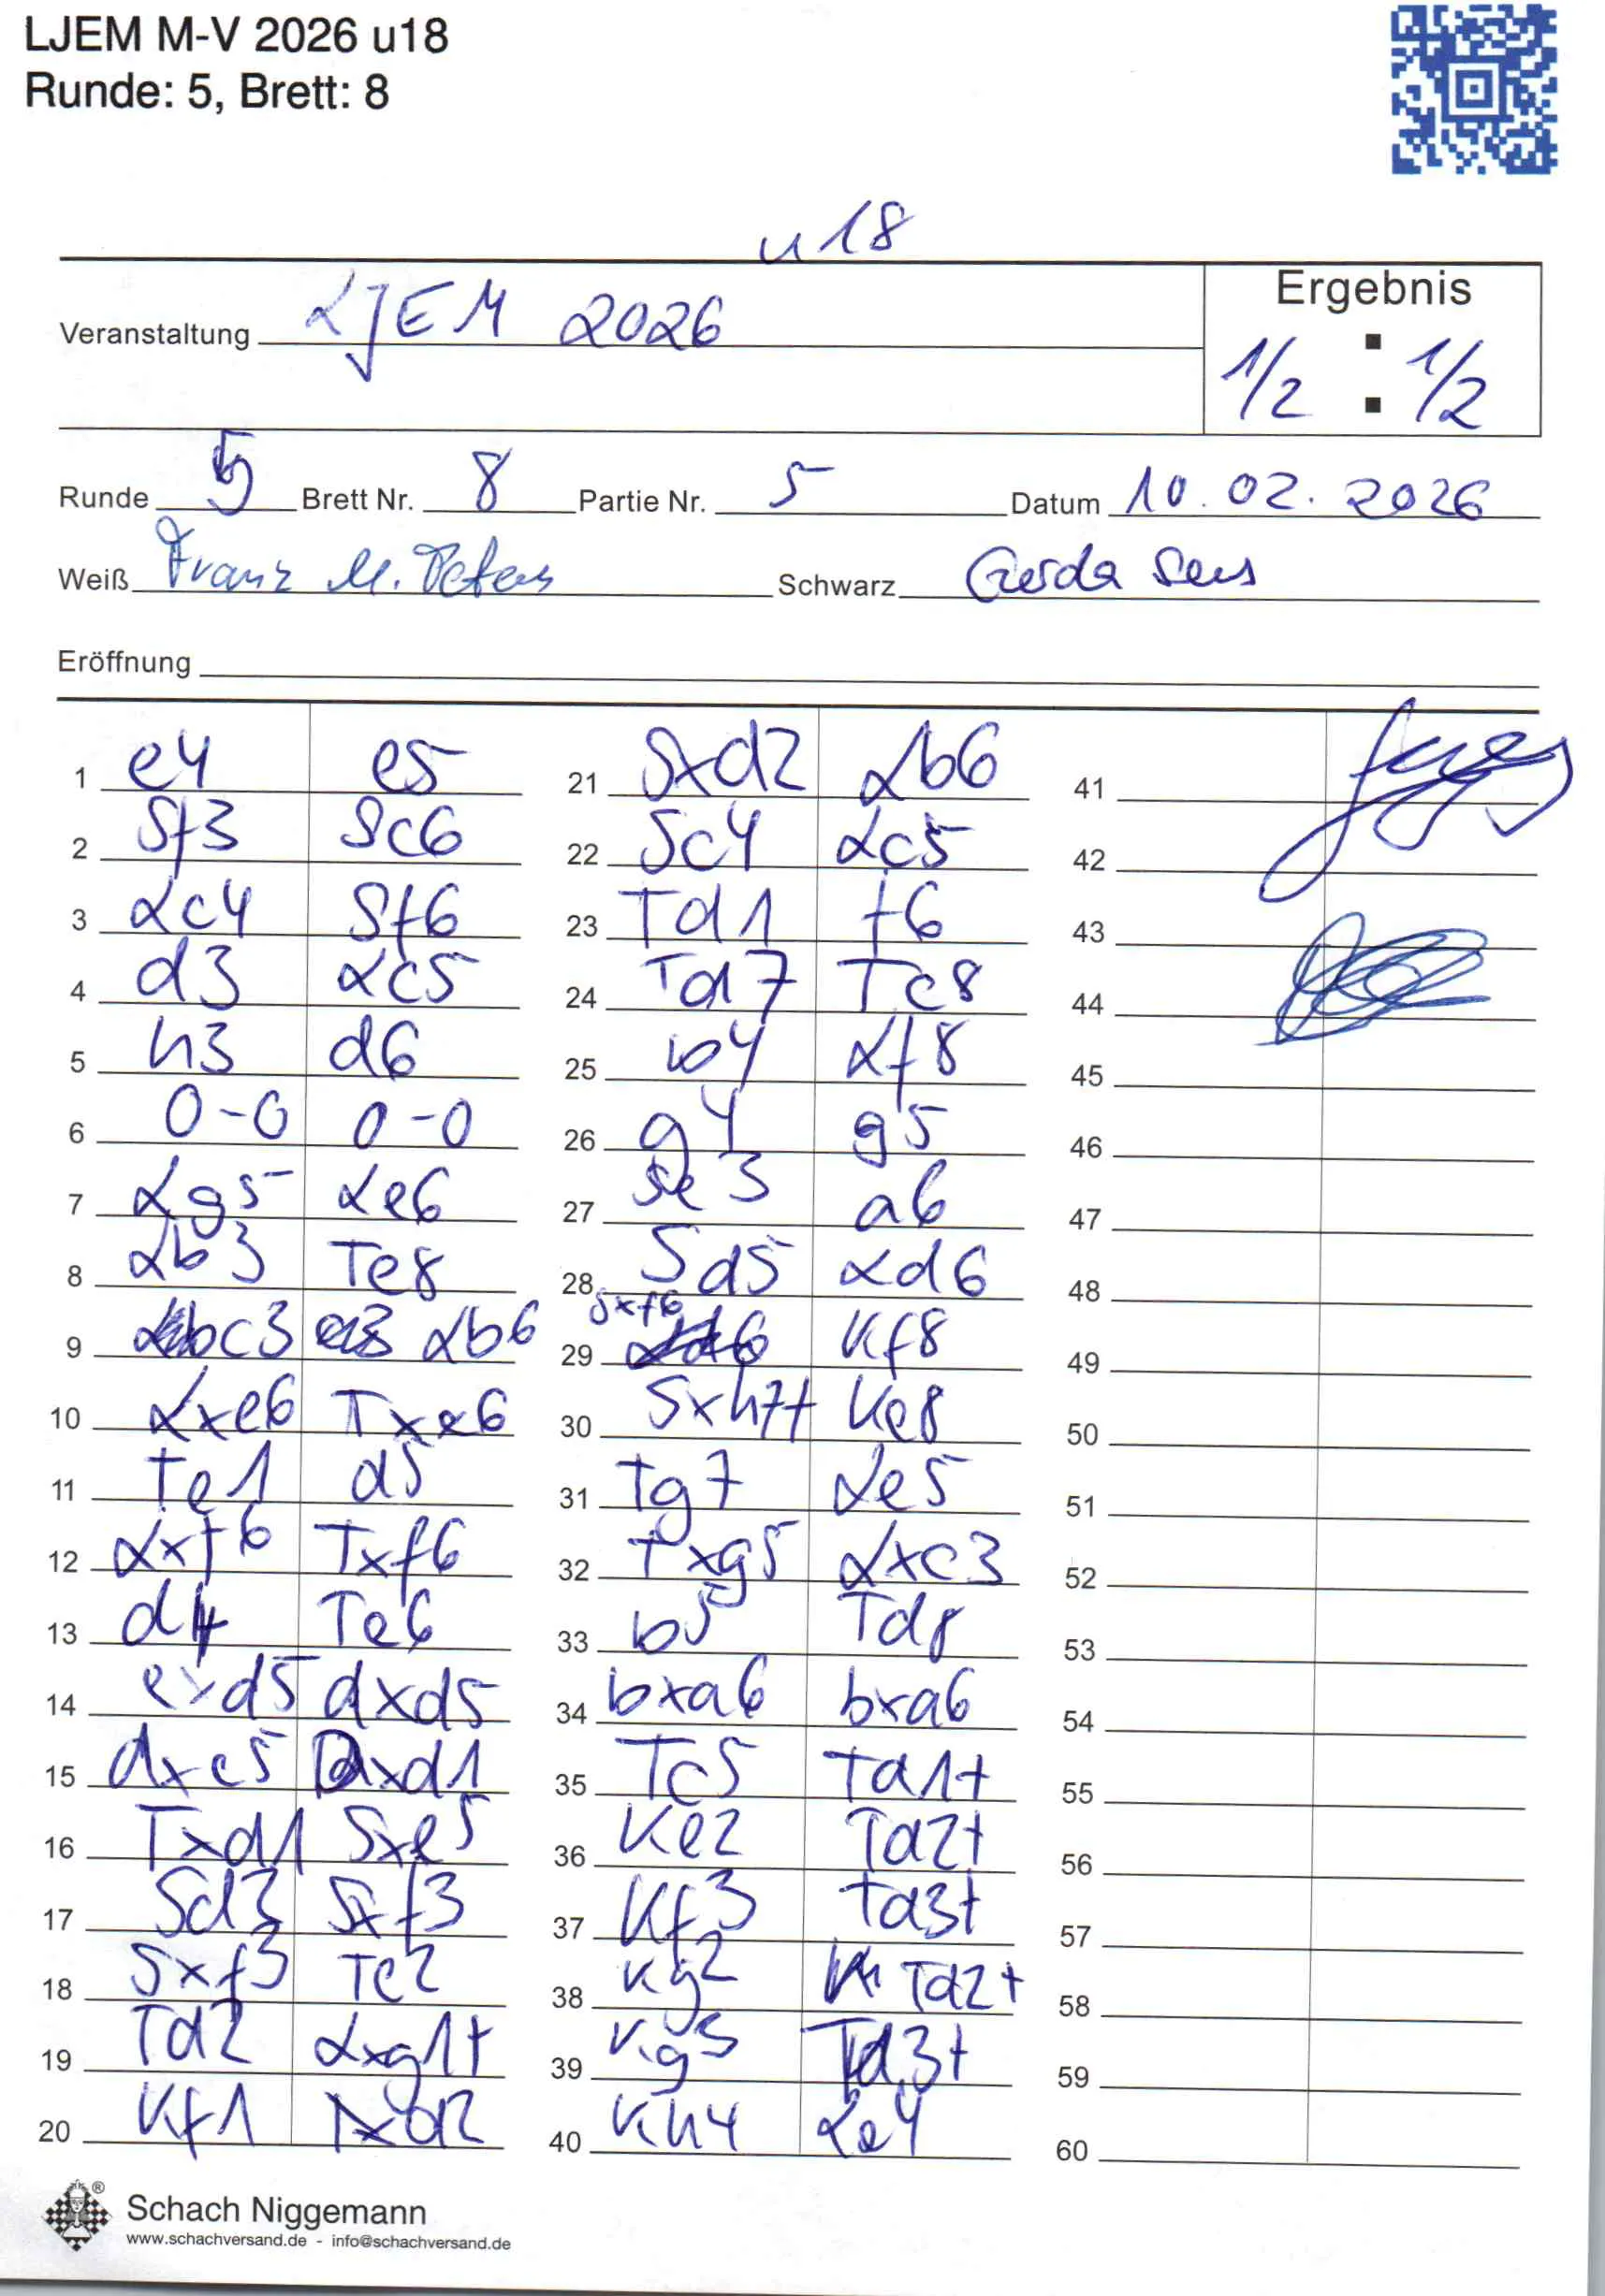 LJEM M-V 2026 u18
Runde: 5, Brett: 8
u18
Veranstaltung LJEM 2026
Ergebnis
1/2 : 1/2
Runde 5 Brett Nr. 8 Partie Nr. 5 Datum 10.02.2026
Weiß Franz M. Peters Schwarz Gerda Sens
Eröffnung
1 e4 e5
2 Sf3 Sc6
3 Lc4 Sf6
4 d3 Lc5
5 h3 d6
6 0-0 0-0
7 Lg5 Le6
8 Lb3 Te8
9 c3 Lb6
10 Lxe6 Txe6
11 Te1 d5
12 Lxf6 Txf6
13 d4 Te6
14 exd5 dxd5
15 dxe5 Dxd1
16 Txd1 Sxe5
17 Sd2 Sxf3
18 Sxf3 Te2
19 Td2 Lxg1+
20 Kf1 Txd2
21 Sxd2 Lb6
22 Sc4 Lc5
23 Td1 f6
24 Td7 Tc8
25 b4 Lf8
26 g4 g5
27 Se3 a6
28 Sd5 Ld6
29 Sxf6 Kf8
30 Sxh7+ Ke8
31 Tg7 Le5
32 Txg5 Lxc3
33 b5 Td8
34 bxa6 bxa6
35 Tc5 Td1+
36 Ke2 Td2+
37 Kf3 Td3+
38 Kg2 Td2+
39 Kg3 Td3+
40 Kh4 Le4
41
42
43
44
45
46
47
48
49
50
51
52
53
54
55
56
57
58
59
60
Schach Niggemann
www.schachversand.de - info@schachversand.de